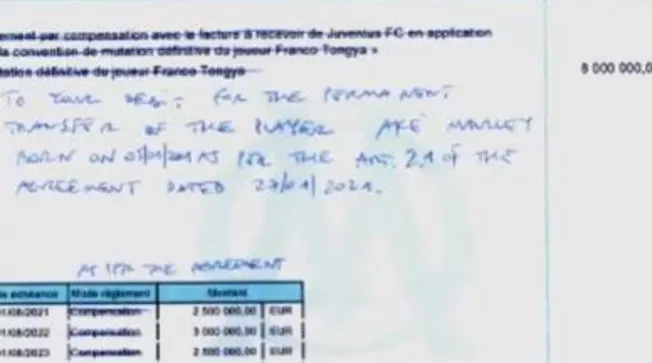 ement par compensation avec la facture à recevoir de Juventus FC en application
la convention de mutation définitive du joueur Franco Tongya »
tation définitive du joueur Franco Tongya
8 000 000,0
TO YOUR DEBIT FOR THE PERMANENT
TRANSFER OF THE PLAYER AKE MARLEY
BORN ON AS PER THE ART. 2.1 OF THE
AGREEMENT DATED 27/01/2021.
AS PER THE AGREEMENT
échéance Mode règlement Montant
01/08/2021 Compensation 2 500 000,00 EUR
01/08/2022 Compensation 3 000 000,00 EUR
01/08/2023 Compensation 2 500 000,00 EUR